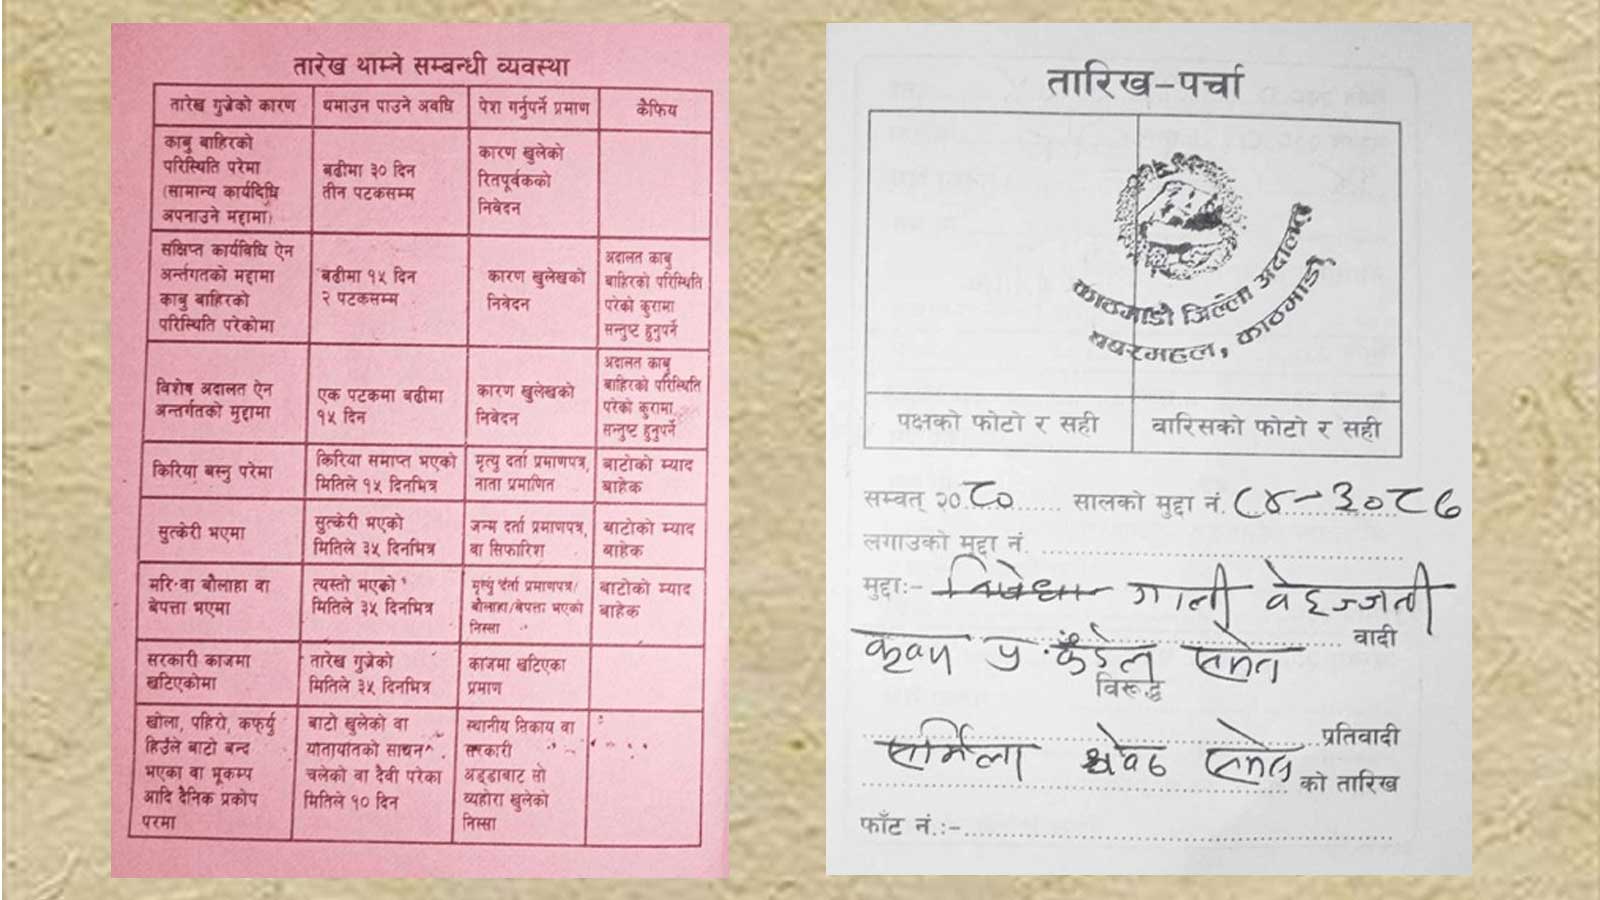 तारेख थाम्ने सम्बन्धी व्यवस्था
तारेख गुज्रेको कारण
थमाउन पाउने अवधि
पेश गर्नुपर्ने प्रमाण
कैफिय
काबु बाहिरको
परिस्थिति परेमा
(सामान्य कार्यदिधि
अपनाउने मद्दामा)
बढीमा ३० दिन
तीन पटकसम्म
कारण खुलेको
रितपूर्वकको
निवेदन
संक्षिप्त कार्यविधि ऐन
अर्न्तगतको मद्दामा
काबु बाहिरको
परिस्थिति परेकोमा
बढीमा १५ दिन
२ पटकसम्म
कारण खुलेखको
निवेदन
अदालत काबु
बाहिरको परिस्थिति
परेको कुरामा
सन्तुष्ट हुनुपर्ने
विशेष अदालत ऐन
अन्तर्गतको मुद्दामा
एक पटकमा बढीमा
१५ दिन
कारण खुलेखको
निवेदन
अदालत काबु
बाहिरको परिस्थिति
परेको कुरामा
सन्तुष्ट हुनुपर्ने
किरिया बस्नु परेमा
किरिया समाप्त भएको
मितिले १५ दिनभित्र
मृत्यु दर्ता प्रमाणपत्र,
नाता प्रमाणित
बाटोको म्याद
बाहेक
सुत्केरी भएमा
सुत्केरी भएको
मितिले ३५ दिनभित्र
जन्म दर्ता प्रमाणपत्र,
वा सिफारिश
बाटोको म्याद
बाहेक
मरि वा बौलाहा वा
बेपत्ता भएमा
त्यस्तो भएको
मितिले ३५ दिनभित्र
मृत्यु दर्ता प्रमाणपत्र/
बौलाहा/बेपत्ता भएको
निस्सा
बाटोको म्याद
बाहेक
सरकारी काजमा
खटिएकोमा
तारेख गुज्रेको
मितिले ३५ दिनभित्र
काजमा खटिएका
प्रमाण
खोला, पहिरो, कर्फ्यु
हिउँले बाटो बन्द
भएका वा भूकम्प
आदि दैनिक प्रकोप
परमा
बाटो खुलेको वा
यातायातको साधन
चलेको वा दैवी परेका
मितिले १० दिन
स्थानीय निकाय वा
सरकारी
अड्डाबाट सो
व्यहोरा खुलेको
निस्सा
तारिख-पर्चा
काठमाडौं जिल्ला अदालत
बबरमहल, काठमाडौं
पक्षको फोटो र सही
वारिसको फोटो र सही
सम्वत् २०८० सालको मुद्दा नं. ८४-३०८७
लगाउको मुद्दा नं.
मुद्दा:- गाली वेइज्जती
वादी
प्र. कँडेल समेत
विरूद्ध
प्रतिवादी
सर्मिला श्रेष्ठ समेत को तारिख
फाँट नं.:-